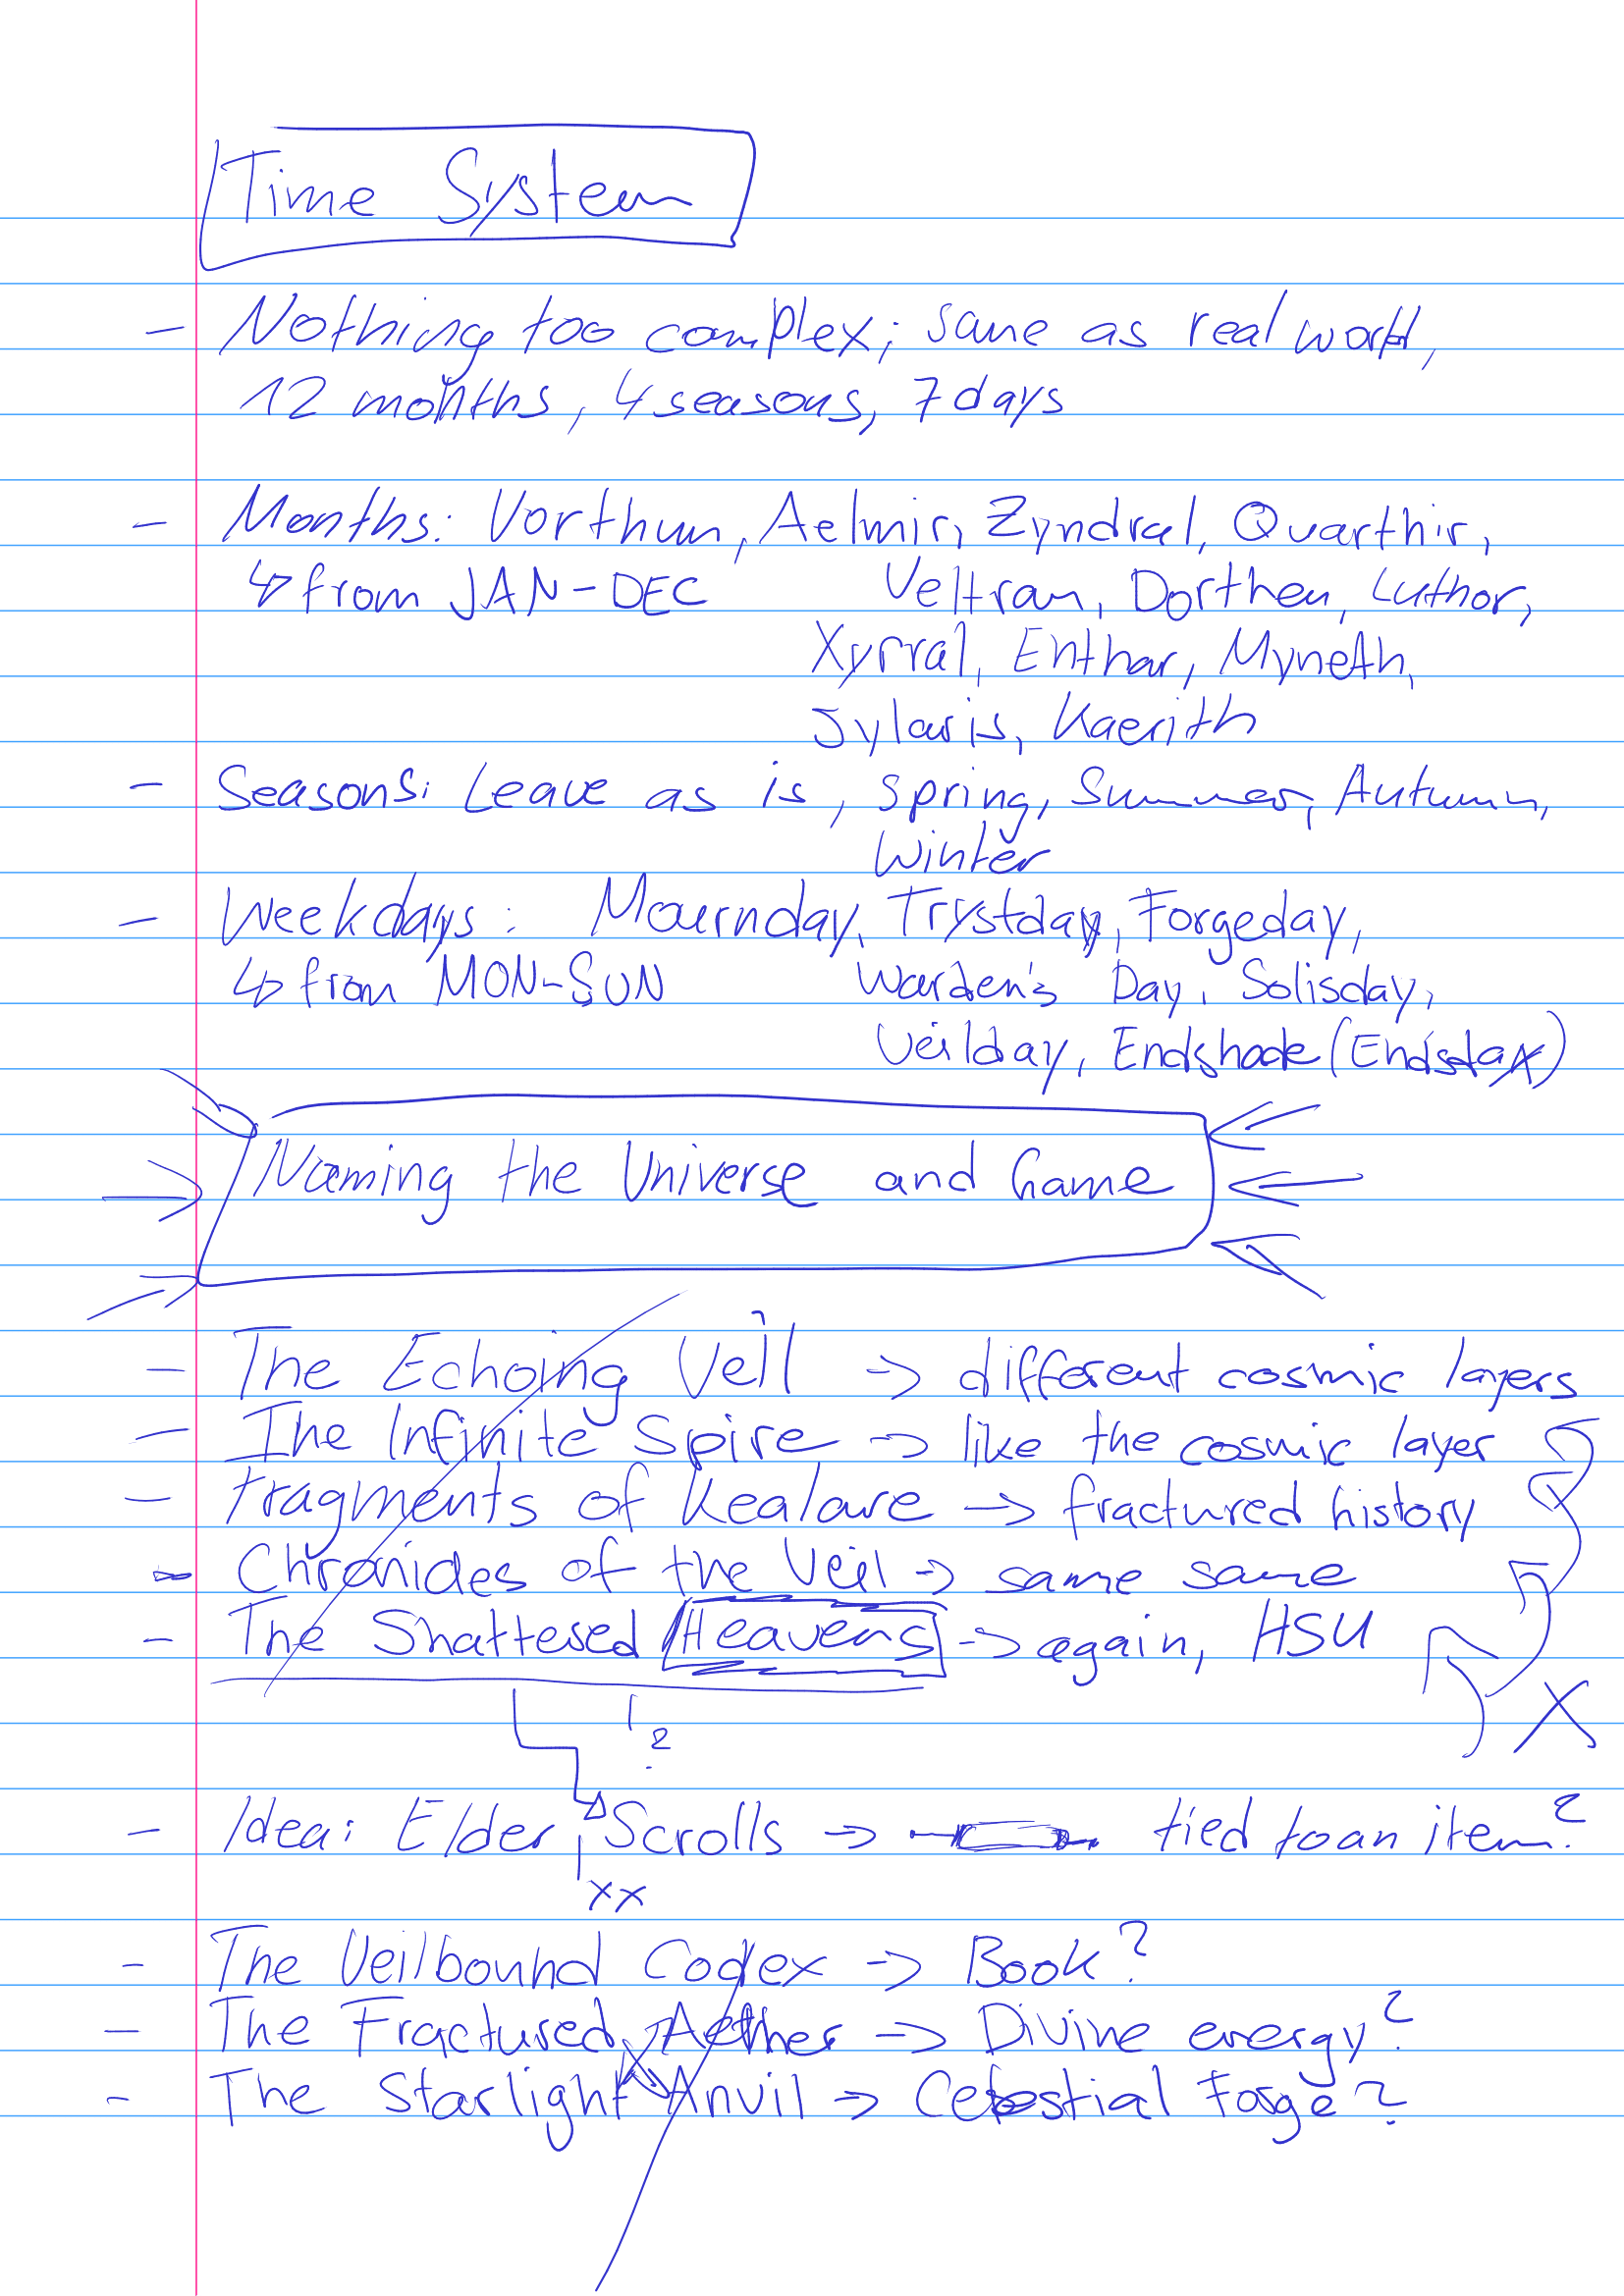 Time System
- Nothing too complex; same as real world,
12 months, 4 seasons, 7 days
- Months: Vorthun, Aelmir, Zyndral, Quarthir,
↳ from JAN-DEC Veltran, Dorthen, Luthor,
Xyrral, Enthar, Myneth,
Jylaris, Kaerith
- Seasons: Leave as is, Spring, Summer, Autumn,
Winter
- Weekdays: Mournday, Trystday, Forgeday,
↳ from MON-SUN Warden's Day, Solisday,
Veilday, Endshade (Endsday)
Naming the Universe and Game
- The Echoing Veil -> different cosmic layers
- The Infinite Spire -> like the cosmic layer
- Fragments of Kealare -> fractured history
- Chronicles of the Veil -> same same
- The Shattered Heavens -> again, HSU
X
?
- Idea: Elder Scrolls -> tied to an item?
XX
- The Veilbound Codex -> Book?
- The Fractured Aether -> Divine energy?
- The Starlight Anvil -> Celestial Forge?